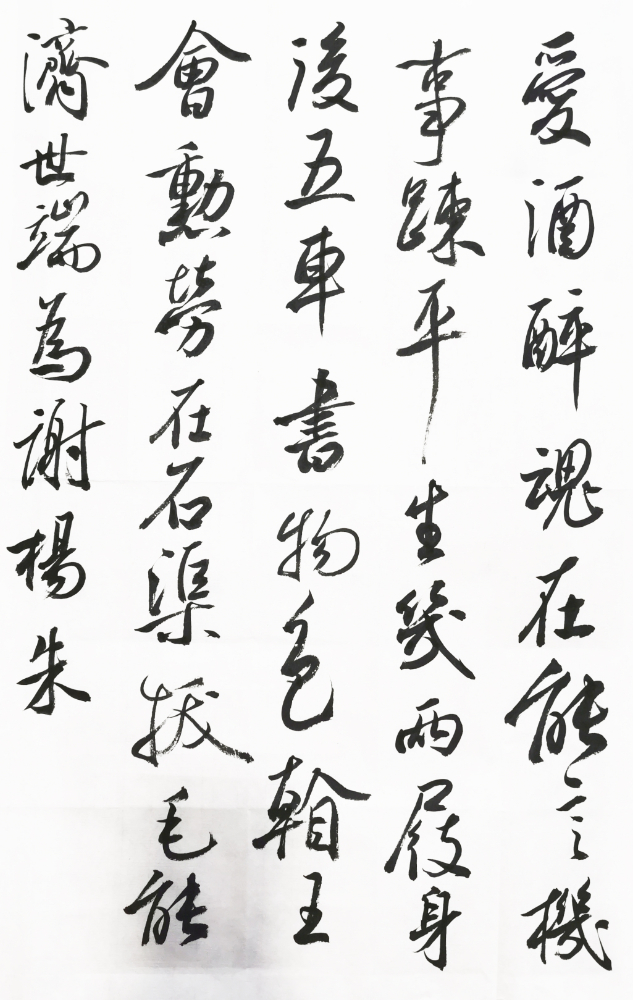 愛酒醉魂在能言機
事疎平生幾兩屐身
後五車書物色翰王
會勲勞在石渠拔毛能
濟世端為謝楊朱